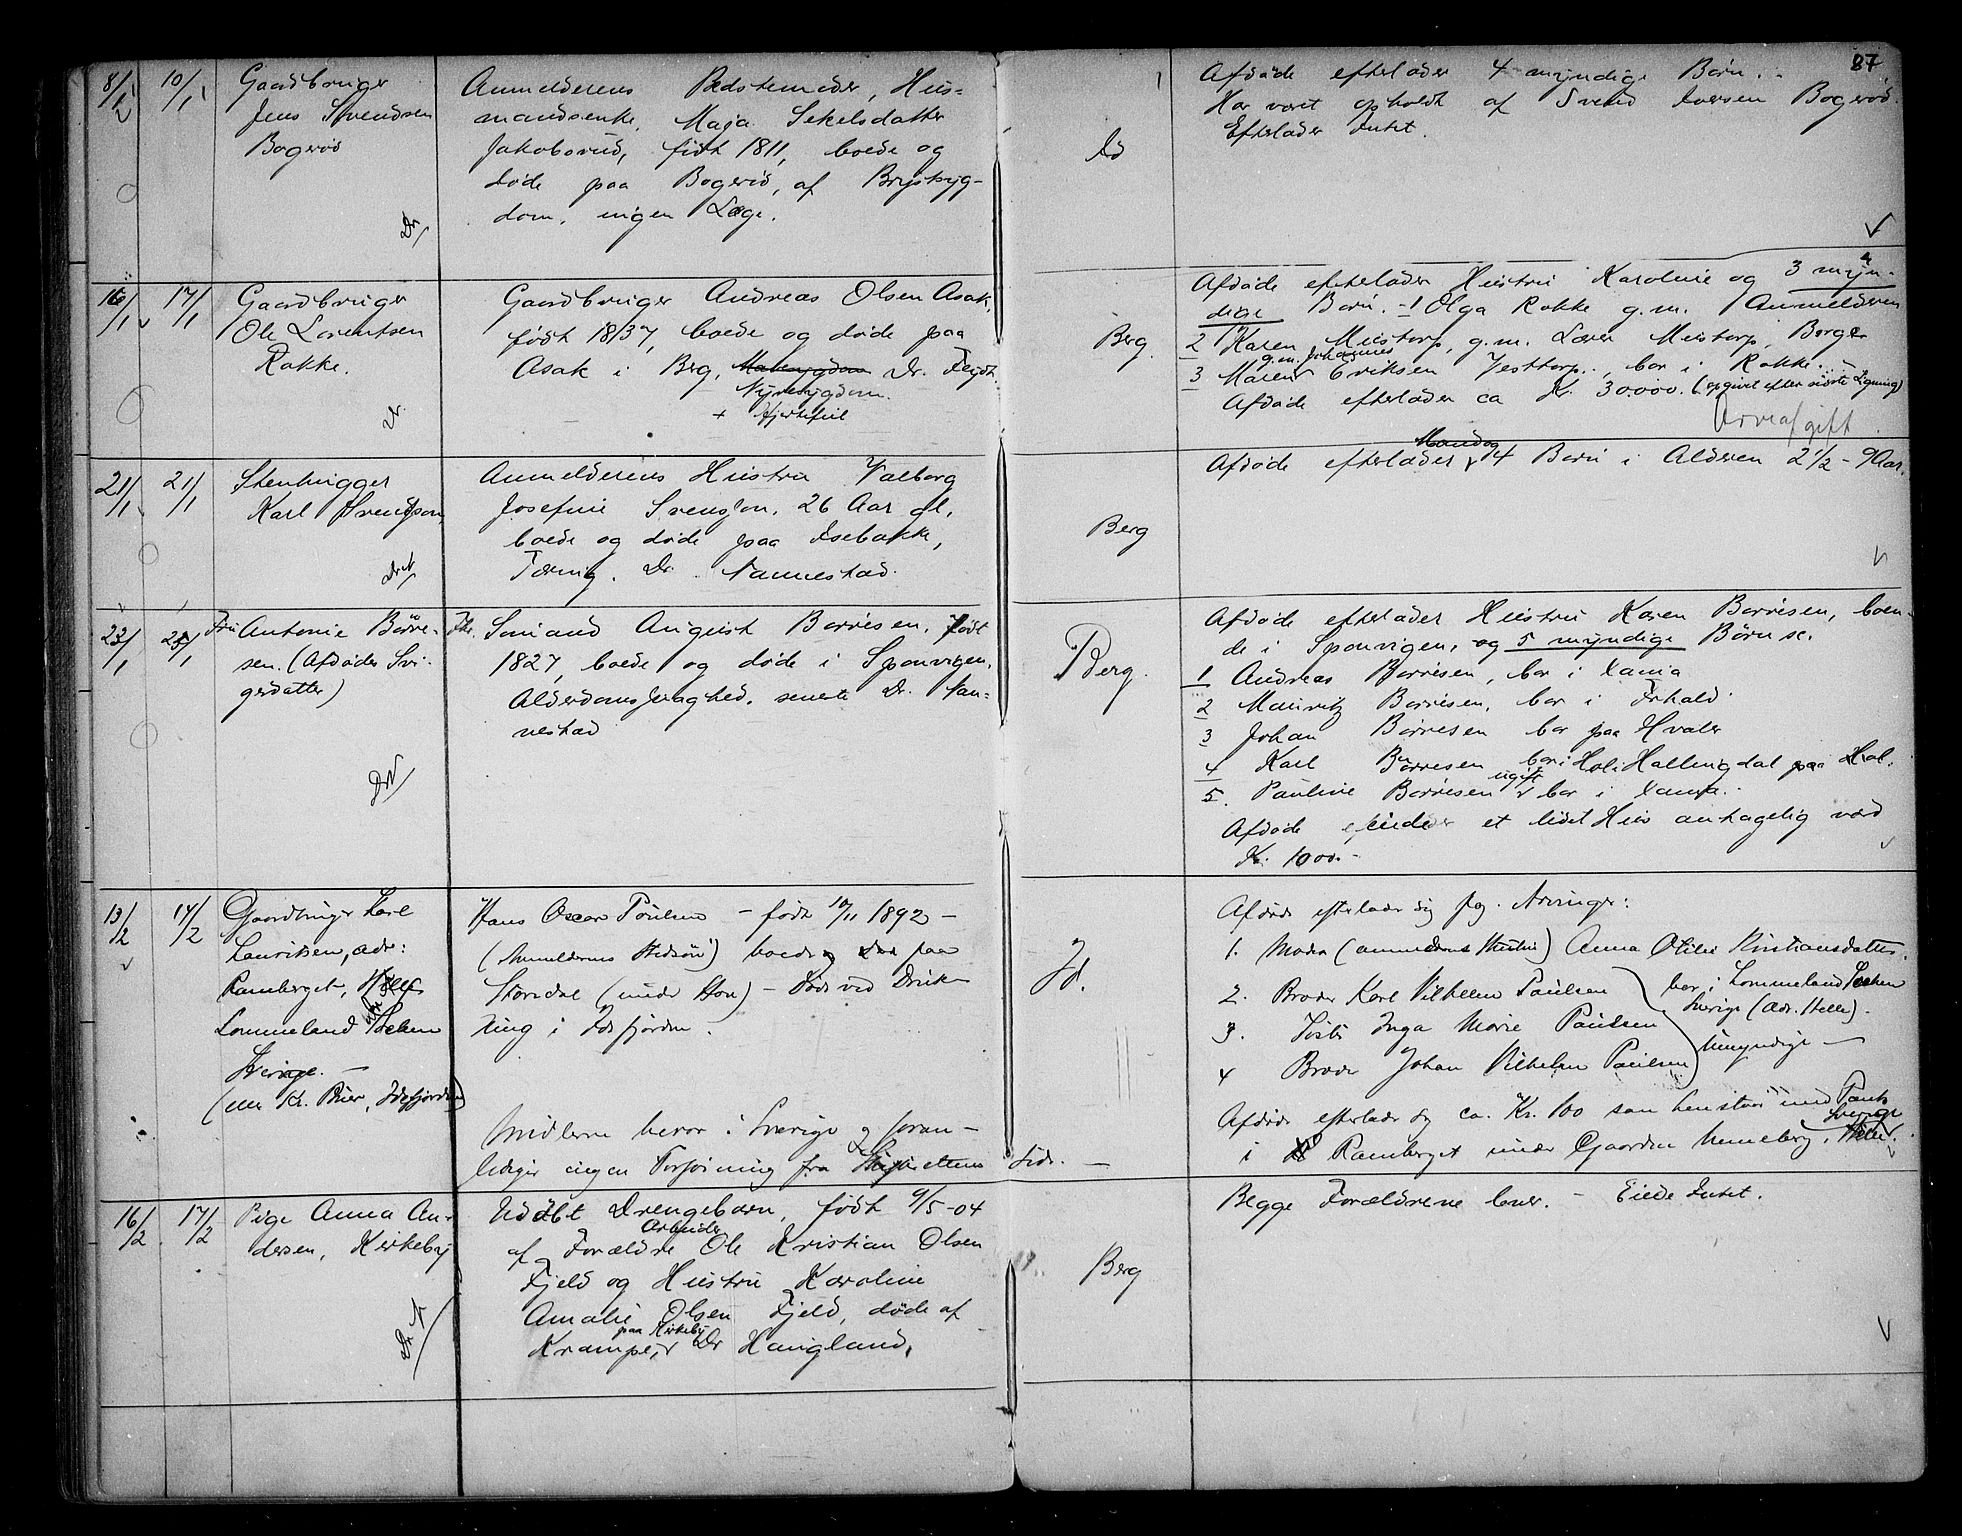 87
8/1 10/1 Gaardbruger
Jens Svendsen
Bogerød
Dr.
Anmelderens Bedstemoder, Hus-
mandsenke Maja Sekelsdatter
Jakobsrud, født 1811, boede og
døde paa Bogerød, af Brystsyg-
dom, ingen Læge.
Id
Afdøde efterlader 4 myndige Børn.
Har været opholdt af Svend Iversen Bogerød.
Efterlader Intet.
16/1 17/1 Gaardbruger
Ole Lorentsen
Rokke.
Dr.
Gaardbruger Andreas Olsen Asak,
født 1837, boede og døde paa
Asak i Berg, Mavesygdom Dr.
Nyresygdom.
+ Hjertefeil
Berg.
Afdøde efterlader Hustru Karoline og 3 myn-
dige Børn. - 1 Olga Rokke g.m. Anmelderen
2 Karen Mustorp, g.m. Lærer Mustorp, Borge
g.m. Johannes
3 Maren Eriksen bor i Rokke.
Afdøde efterlader ca Kr. 30000. (opgivet efter sidste Ligning)
Arveafgift
21/1 21/1 Stenhugger
Karl Svensson
Dr. N
Anmelderens Hustru Valborg
Josefine Svensson, 26 Aar gl,
boede og døde paa Isebakke,
Tæring. Dr. Nannestad.
Berg
Mand og
Afdøde efterlader 4 Børn i Alderen 2 1/2 - 9 Aar.
23/1 25/1 Fru Antonie Børre-
sen. (Afdødes Svi-
gerdatter)
Dr N
Fhv. Sømand August Børresen, født
1827, boede og døde i Sponvigen,
Alderdomssvaghed. seneste Dr. Nan-
nestad
Berg.
Afdøde efterlader Hustru Karen Børresen, boen-
de i Sponvigen, og 5 myndige Børn se.
1 Andreas Børresen, bor i Xania
2 Mauritz Børresen, bor i Frhald
3 Johan Børresen bor paa Hvaler
4 Karl Børresen bor i Hol i Hallingdal paa Hol.
ugift
5. Pauline Børresen bor i Xania.
Afdøde eiede et lidet Hus antagelig værd
Kr. 1000.-
13/2 14/2 Gaardbruger Karl
Lauritsen, adr:
Ramberget, Helle
Lommeland Sockem
Sverige. -
(eller Kr. Buer, Idefjorden)
Hans Oscar Poulsen - født 10/11 1892 -
(Anmelderens Stedsøn) boede og døde paa
Storedal (under Hov) - Døde ved Druk-
ning i Idefjorden.
Midlerne beror i Sverige og foran-
lediger ingen Forføining fra Skifterettens
Side. -
Id.
Afdøde efterlader sig flg. Arvinger:
1. Moder (anmelderens Hustru) Anna Otilie Kristiansdatter.
2. Broder Karl Vilhelm Paulsen
3. Søster Inga Marie Paulsen
4 Broder Johan Vilhelm Paulsen
bor i Lommeland Socken
Sverige (Adr. Helle).
Umyndige -
Afdøde efterlader sig ca. Kr. 100 som henstaar med Pant
i Ramberget under Gaarden Henneberg, Helle.
Sverige
16/2 17/2 Pige Anna An-
dersen, Kirkeby
Dr N
Udøbt Drengebarn, født 9/5-04
Arbeider
af Forældre Ole Kristian Olsen
Fjeld og Hustru Karoline
Amalie Olsen Fjeld, døde af
paa Kirkeby
Krampe, Dr Haugland.
Berg
Begge Forældrene lever. - Eiede Intet.